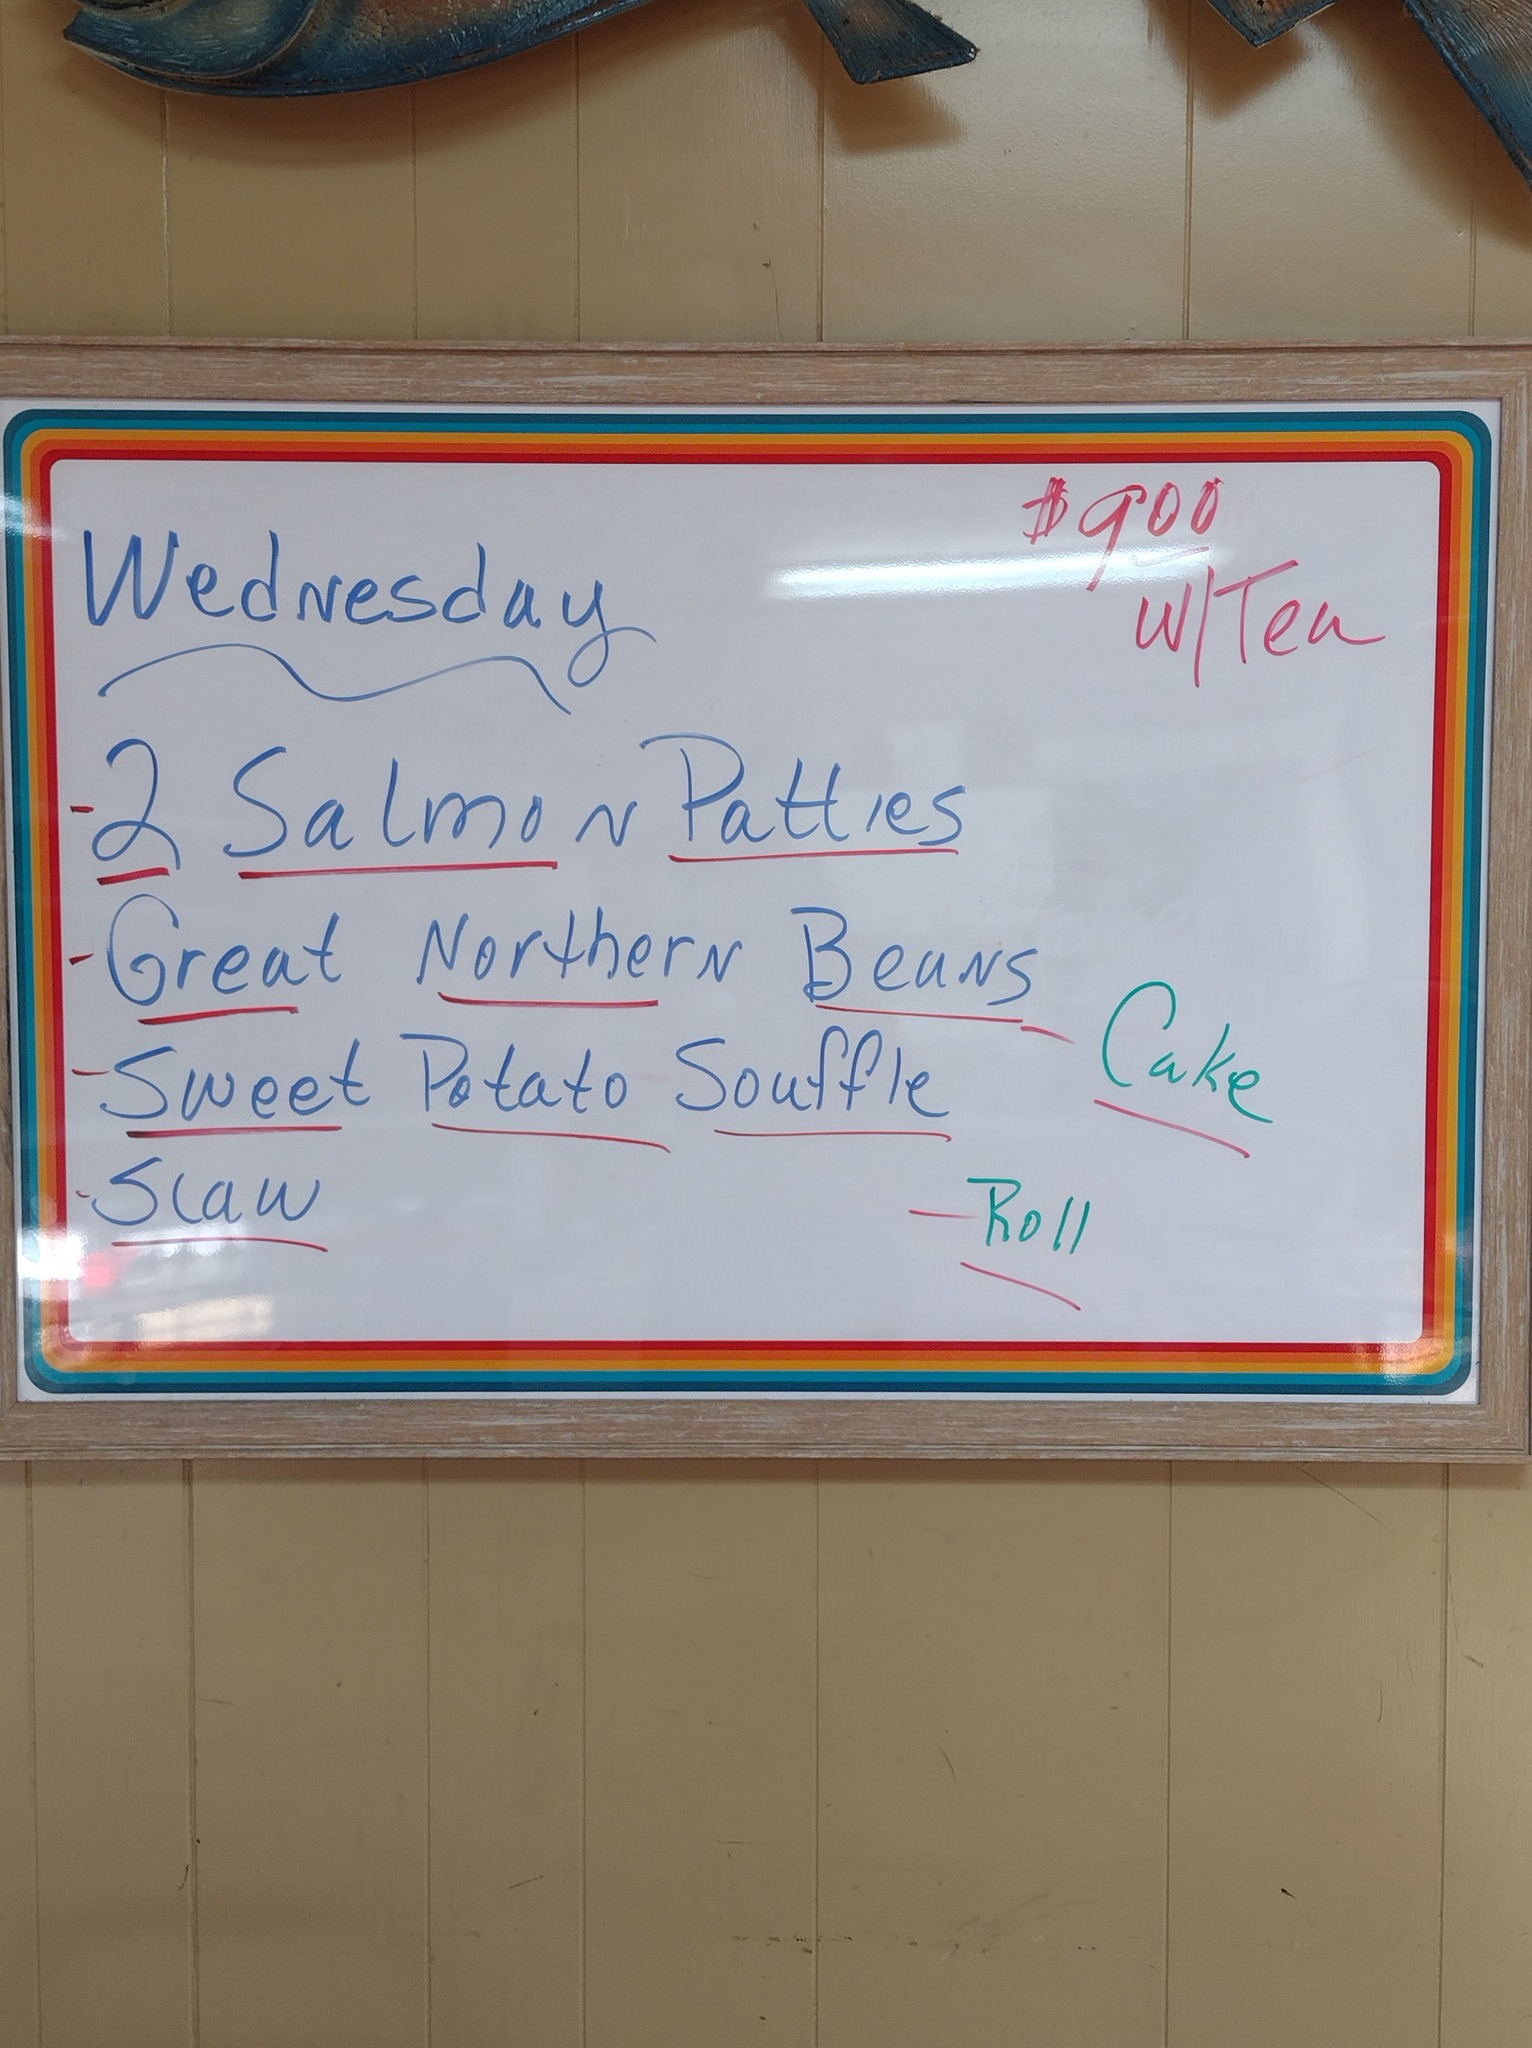 Wednesday
$900
w/Tea
-2 Salmon Patties
-Great Northern Beans
-Sweet Potato Souffle
-Slaw
- Cake
-Roll